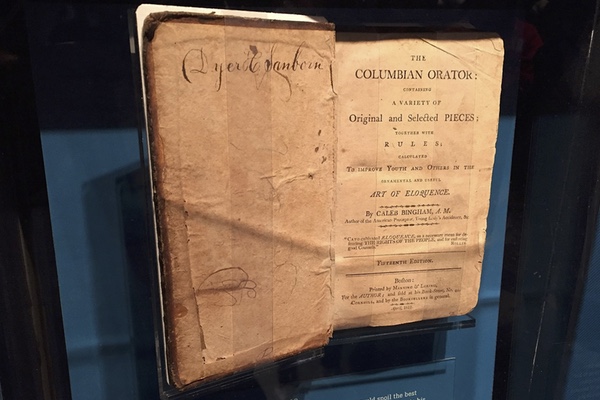 Dyer H Sanborn
THE
COLUMBIAN ORATOR:
CONTAINING
A VARIETY OF
Original and Selected PIECES;
TOGETHER WITH
RULES;
CALCULATED
TO IMPROVE YOUTH AND OTHERS IN THE
ORNAMENTAL AND USEFUL
ART OF ELOQUENCE.
By CALEB BINGHAM, A. M.
Author of the American Preceptor, Young Lady's Accidence, &c.
"CATO cultivated ELOQUENCE, as a necessary mean for defending THE RIGHTS OF THE PEOPLE, and for enforcing
good Counsels."
ROLLIN
FIFTEENTH EDITION.
Boston:
Printed by MANNING & LORING,
For the AUTHOR; and sold at his Book-store, No. 44,
CORNHILL, and by the BOOKSELLERS in general.
April
ld spoil the best
his